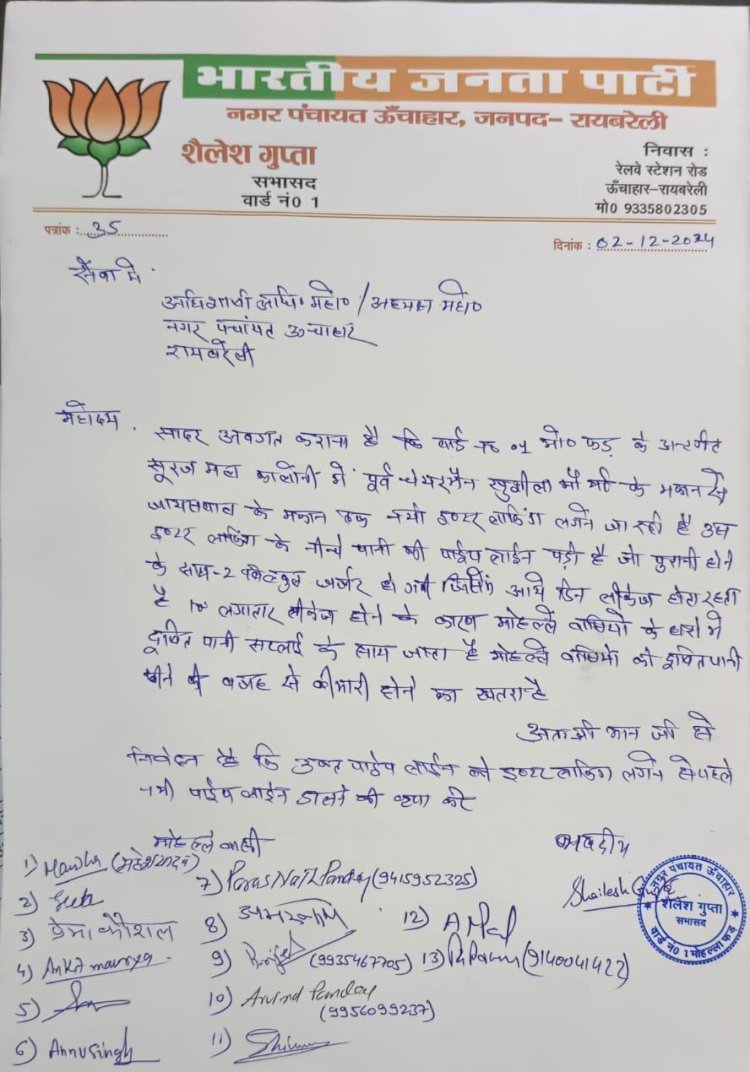 भारतीय जनता पार्टी
नगर पंचायत ऊँचाहार, जनपद- रायबरेली
शैलेश गुप्ता
सभासद
वार्ड नं0 1
निवास :
रेलवे स्टेशन रोड
ऊँचाहार-रायबरेली
मो0 9335802305
पत्रांक : 35
दिनांक : 02-12-2024
सेवा में
अधिशाषी अधि० महो० / अध्यक्ष महो०
नगर पंचायत ऊंचाहार
रायबरेली
महोदय,
सादर अवगत कराना है कि वार्ड नं० 01 मो० फड़ के अन्तर्गत
सूरज महा कालोनी में पूर्व चेयरमैन के मकान से
जायसवाल के मकान तक नयी इण्टर लाकिंग लगने जा रही है उस
इण्टर लाकिंग के नीचे पानी की पाईप लाईन पड़ी है जो पुरानी होने
के साथ-2 जर्जर हो गयी आये दिन लीकेज होता रहता
है लगातार लीकेज होने के कारण मोहल्ले वासियों के घरों में
दूषित पानी सप्लाई के साथ जाता है मोहल्ले वासियों को दूषित पानी
पीने की वजह से बीमारी होने का खतरा है
अतः श्री मान जी से
निवेदन है कि उक्त पाईप लाईन को इण्टर लाकिंग लगने से पहले
नयी पाईप लाईन डालने की कृपा करें
मोहल्ले वासी
भवदीय
Shailesh Gupta
नगर पंचायत ऊँचाहार
शैलेश गुप्ता
सभासद
वार्ड नं0 1 मोहल्ला फड़
1)
2)
3) प्रेमा कौशल
4) Ankit maurya
5)
6) Annu Singh
7) Paras Nath Pandey (9415952325)
8)
9) (9935467705)
10) Arvind Pandey
(9956099237)
11)
12)
13) (9140041422)